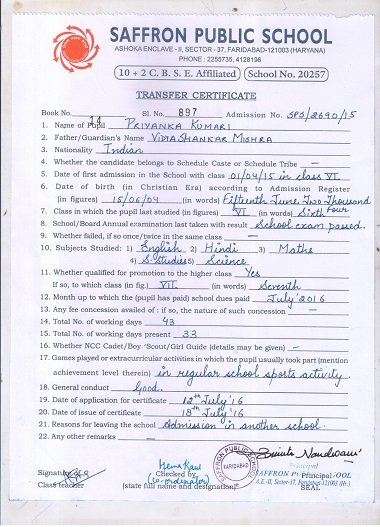 SAFFRON PUBLIC SCHOOL
ASHOKA ENCLAVE - II, SECTOR - 37, FARIDABAD-121003 (HARYANA)
PHONE : 2255735, 4128196
10 + 2 C. B. S. E. Affiliated School No. 20257
TRANSFER CERTIFICATE
Book No. 14 Sl. No. 897 Admission No. SPS/2690/15
1. Name of Pupil PRIYANKA KUMARI
2. Father/Guardian's Name VIDYA SHANKAR MISHRA
3. Nationality Indian
4. Whether the candidate belongs to Schedule Caste or Schedule Tribe —
5. Date of first admission in the School with class 01/04/15 in class VI.
6. Date of birth (in Christian Era) according to Admission Register
(in figures) 15/06/04 (in words) Fifteenth June Two Thousand four
7. Class in which the pupil last studied (in figures) VI (in words) Sixth
8. School/Board Annual examination last taken with result School exam passed.
9. Whether failed, if so once/twice in the same class —
10. Subjects Studied : 1) English 2) Hindi 3) Maths
4) S.Studies 5) Science
11. Whether qualified for promotion to the higher class Yes
If so, to which class (in fig.) VII. (in words) Seventh
12. Month up to which the (pupil has paid) school dues paid July'2016
13. Any fee concession availed of : if so, the nature of such concession —
14. Total No. of working days 43
15. Total No. of working days present 33
16. Whether NCC Cadet/Boy 'Scout/Girl Guide (details may be given) —
17. Games played or extracurricular activities in which the pupil usually took part (mention
achievement level therein) in regular school sports activity
18. General conduct Good.
19. Date of application for certificate 12th July'16
20. Date of issue of certificate 18th July'16
21. Reasons for leaving the school Admission in another school.
22. Any other remarks —
SAFFRON PUBLIC SCHOOL
FARIDABAD
Signature
Class teacher
Checked by
(Co-ordinator)
(state full name and designation)
Principal
SAFFRON PUBLIC SCHOOL
Principal
A.E.-II, Sector-37, Faridabad-121003 (Hr.)
SEAL